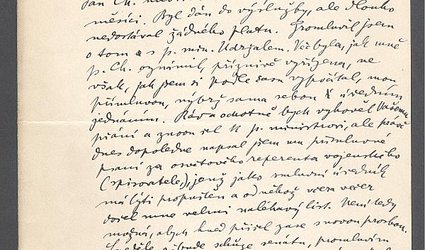 pan Ch.
měsíci. Byl dán do výslužby, ale dlouho
nedostával žádného platu. Promluvil jsem
o tom s p. min. Udržalem. Věc byla, jak mně
p. Ch. oznámil, příznivě vyřízena, ne
však, jak jsem si podle času vypočítal, mou
přímluvou, nýbrž sama sebou úředním
jednáním. Rád a ochotně bych vyhověl Vašemu
přání a znovu šel k p. ministrovi, ale právě
dnes dopoledne napsal jsem mu přímluvné
psaní za osvětového referenta vojenského
(spisovatele), jenž jako smluvní úředník
má býti propuštěn a od něhož včera večer
došel mne velmi naléhavý list. Není tedy
možná, abych hned přišel zase s novou prosbou.
bude schůze senátu, promluvím